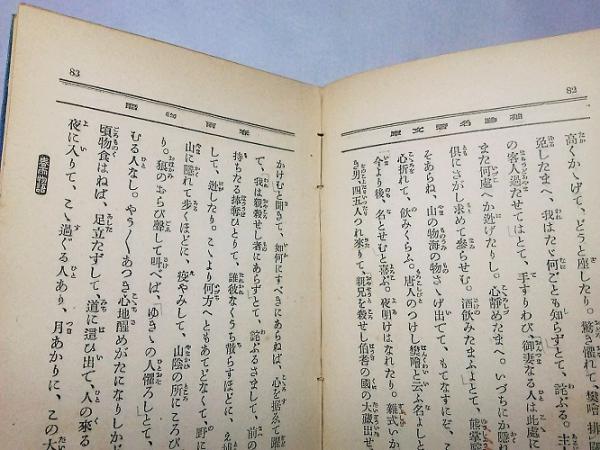 82
袖珍名著文庫
高くかゝげて、どうと座したり。驚き懼れて、樊噲
免したまへ、我はたゞ何どとも知らずとて、詫ぶる。主
の客人過たせてはとて、手すりわび、御妻なる人は此處に
また何處へか逃げたりし。心靜めたまへ。いづちにか隱
倶にさがし求めて參らせむ。酒飮みたまふよとて、熊掌
をあらね、山の物海の物さゝげ出でて、もてなすにぞ、
心折れて、飮みくらふ。唐人のつけし樊噲と云ふ名よし
今より後、名とせむと喜ぶ。夜明けはなれたり。雜式いか
き男、四五人つれ來りて、「親兄を殺せし伯耆の國の大藏出せ、
83
春雨物語
かけむ」と聞きて、如何にすべきにあらねば、心を据ゑて躍
て、「我は親殺せし者にあらず」とて、詫ぶるさまして、前の
持ちたる捧奪ひとりて、誰彼なくうち散らすほどに、
して、逃したり。こゝより何方へともあてどなくて、野に
山に隱れて歩くほどに、疫やみして、山陰の所にころび
り。狼のおらび聲して叫べば、「ゆきゝの人懼ろし」とて、
むる人なし。やう〳〵あつき心地醒めがたになりしかど
頃物食はねば、足立たずして、道に這ひ出で、人の來る
夜に入りて、こゝ過ぐる人あり、月あかりに、この大
春雨物語